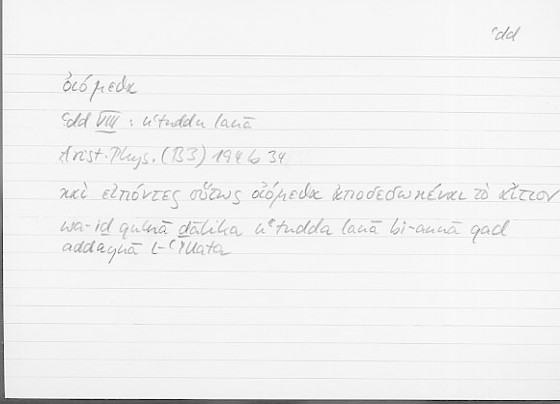 ʿdd
οἰόμεθα
ʿdd VIII : uʿtudda lanā
Arist. Phys. (B3) 194 b 34
καὶ εἰπόντες οὕτως οἰόμεθα ἀποδεδωκέναι τὸ αἴτιον
wa-iḏ qulnā ḏālika uʿtudda lanā bi-annā qad
addaynā l-ʿillata